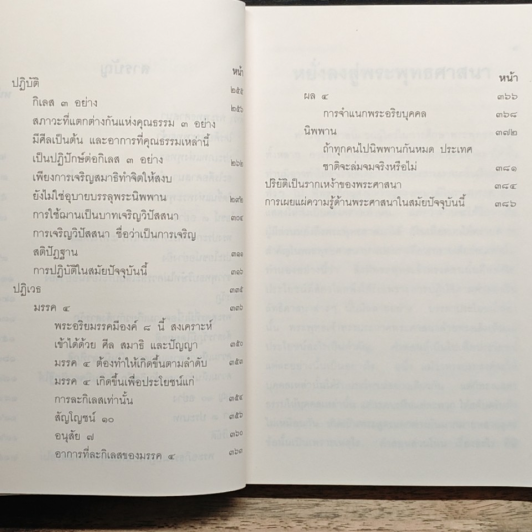 หน้า
ปฏิบัติ ๒๕๕
กิเลส ๓ อย่าง ๒๕๖
สภาวะที่แตกต่างกันแห่งคุณธรรม ๓ อย่าง
มีศีลเป็นต้น และอาการที่คุณธรรมเหล่านี้
เป็นปฏิปักษ์ต่อกิเลส ๓ อย่าง
เพียงการเจริญสมาธิทำจิตให้สงบ
ยังไม่ใช่อุบายบรรลุพระนิพพาน
การใช้ฌานเป็นบาทเจริญวิปัสสนา ๓๐๔
การเจริญวิปัสสนา ชื่อว่าเป็นการเจริญ
สติปัฏฐาน
การปฏิบัติในสมัยปัจจุบันนี้
ปฏิเวธ
มรรค ๔
พระอริยมรรคมีองค์ ๘ นี้ สงเคราะห์
เข้าได้ด้วย ศีล สมาธิ และปัญญา
มรรค ๔ ต้องทำให้เกิดขึ้นตามลำดับ
มรรค ๔ เกิดขึ้นเพื่อประโยชน์แก่
การละกิเลสเท่านั้น
สัญโญชน์ ๑๐ ๓๕๖
อนุสัย ๗ ๓๖๐
อาการที่ละกิเลสของมรรค ๔
หน้า
ผล ๔ ๓๖๖
การจำแนกพระอริยบุคคล ๓๖๘
นิพพาน ๓๗๒
ถ้าทุกคนไปนิพพานกันหมด ประเทศ
ชาติจะล่มจมจริงหรือไม่ ๓๘๑
ปริยัติเป็นรากเหง้าของพระศาสนา ๓๘๔
การเผยแผ่ความรู้ด้านพระศาสนาในสมัยปัจจุบันนี้ ๓๘๖